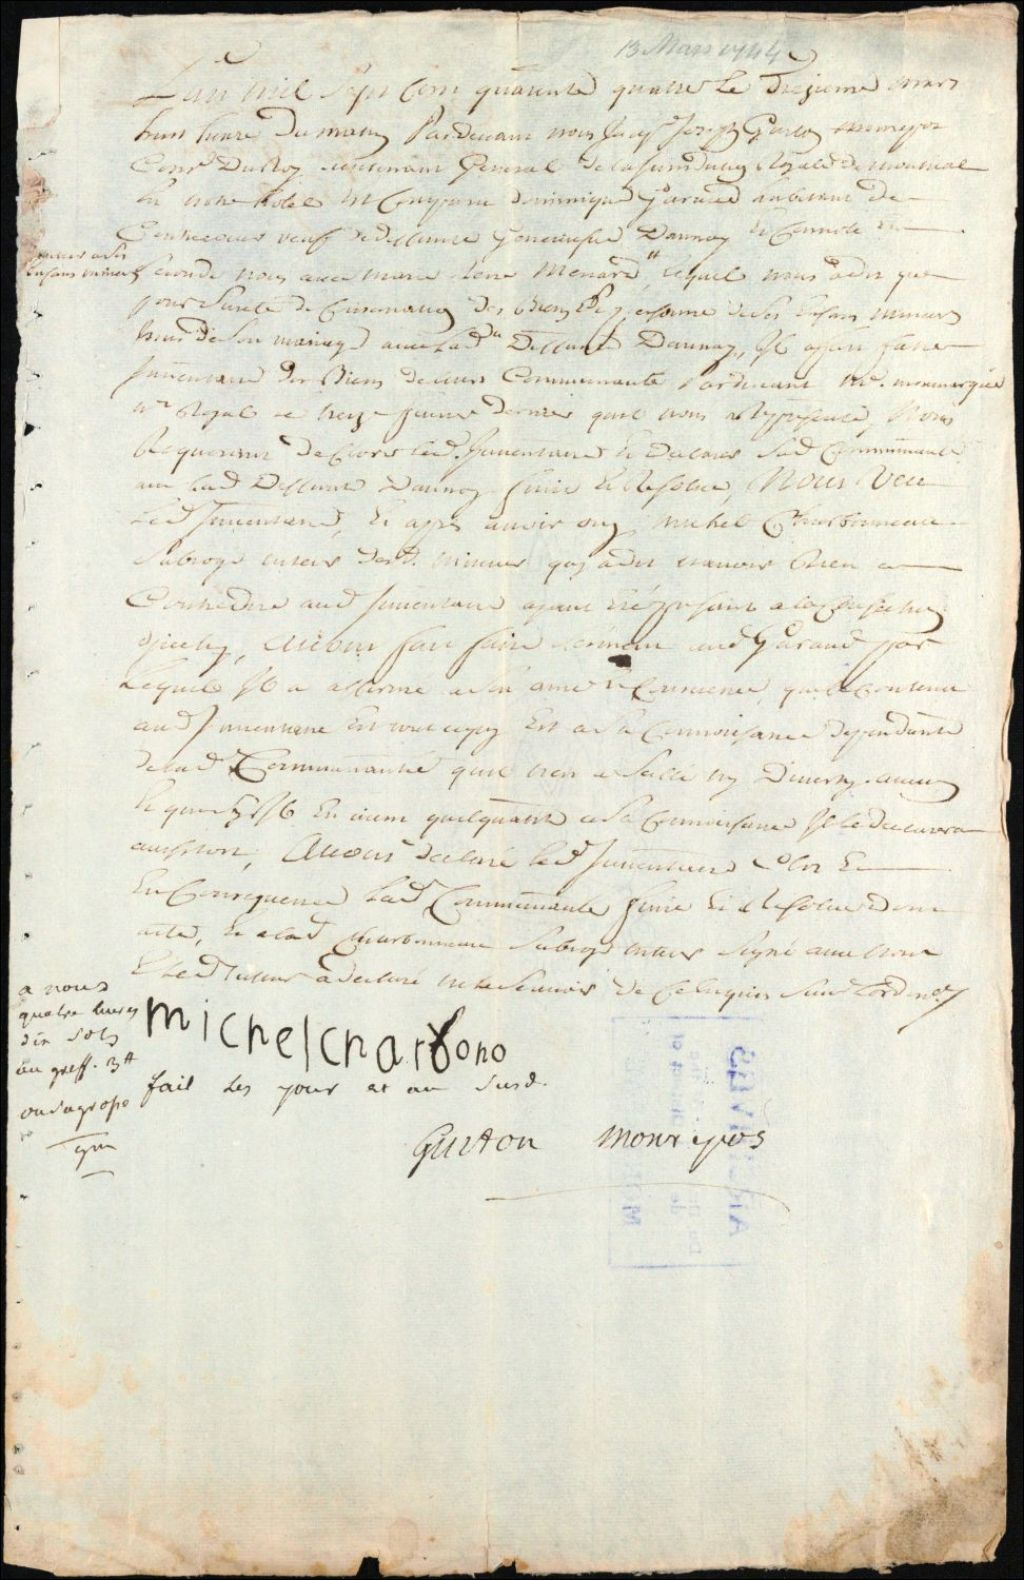 13 Mars 1744
L'an mil sept cent quarante quatre Le Treizieme mars
huit heure Du matin Pardevant nous Jacq Joseph Guiton monrepos
Cons.r Du Roy Lieutenant General de la Jurisdiction Royale de montreal
En notre hotel Est Comparu dominique Garaud habitant de
veuf de deffunte Genevieve Daunay Et Convole En
Seconde noces avec marie menard lequel nous a dit que
pour Sureté de des Biens Et personne de Ses Enfans mineurs
de Son mariage avec lad Deffunte Daunay, Il a fait faire
Inventaire Des Biens de leur Communauté Pardevant
n.re Royal le treize janvier dernier quil nous a Representé, Nous
Requerant de Clore led. Inventaire Et Declarer Lad Communauté
avec lad Deffunte Daunay finie Et Resolue, Nous Veu
Led Inventaire, Et apres avoir ouy michel Charbonneau
Subrogé tuteur desd. mineurs qui a dit n'avoir Rien a
Contredire aud Inventaire ayant Eté present a la Confection
d'iceluy, Avons fait faire serment aud Garaud par
Lequel Il a affirmé a Son ame Et Conscience, que le contenu
aud Inventaire Est tout ce qui Est a Sa Connoissance dependante
de lad Communauté quil n'en a Ny Diverty aucun
Et que s'Il En vient quelquautre a Sa Connoissance Il le declarera
aussitost, Avons declaré led Inventaire Clos Et
En Consequence Lad Communauté finie Et Resolue dont
acte, Et a led Charbonneau Subrogé tuteur Signé avec nous
Et Led tuteur a declaré ne le Scavoir De Ce Enquis Suiv.t Lord.ce
Enfans mineurs
a nous
quatre livres
dix sols
au greff. 3#
michel charbono
fait Les jour et an Susd.
Guiton monrepos